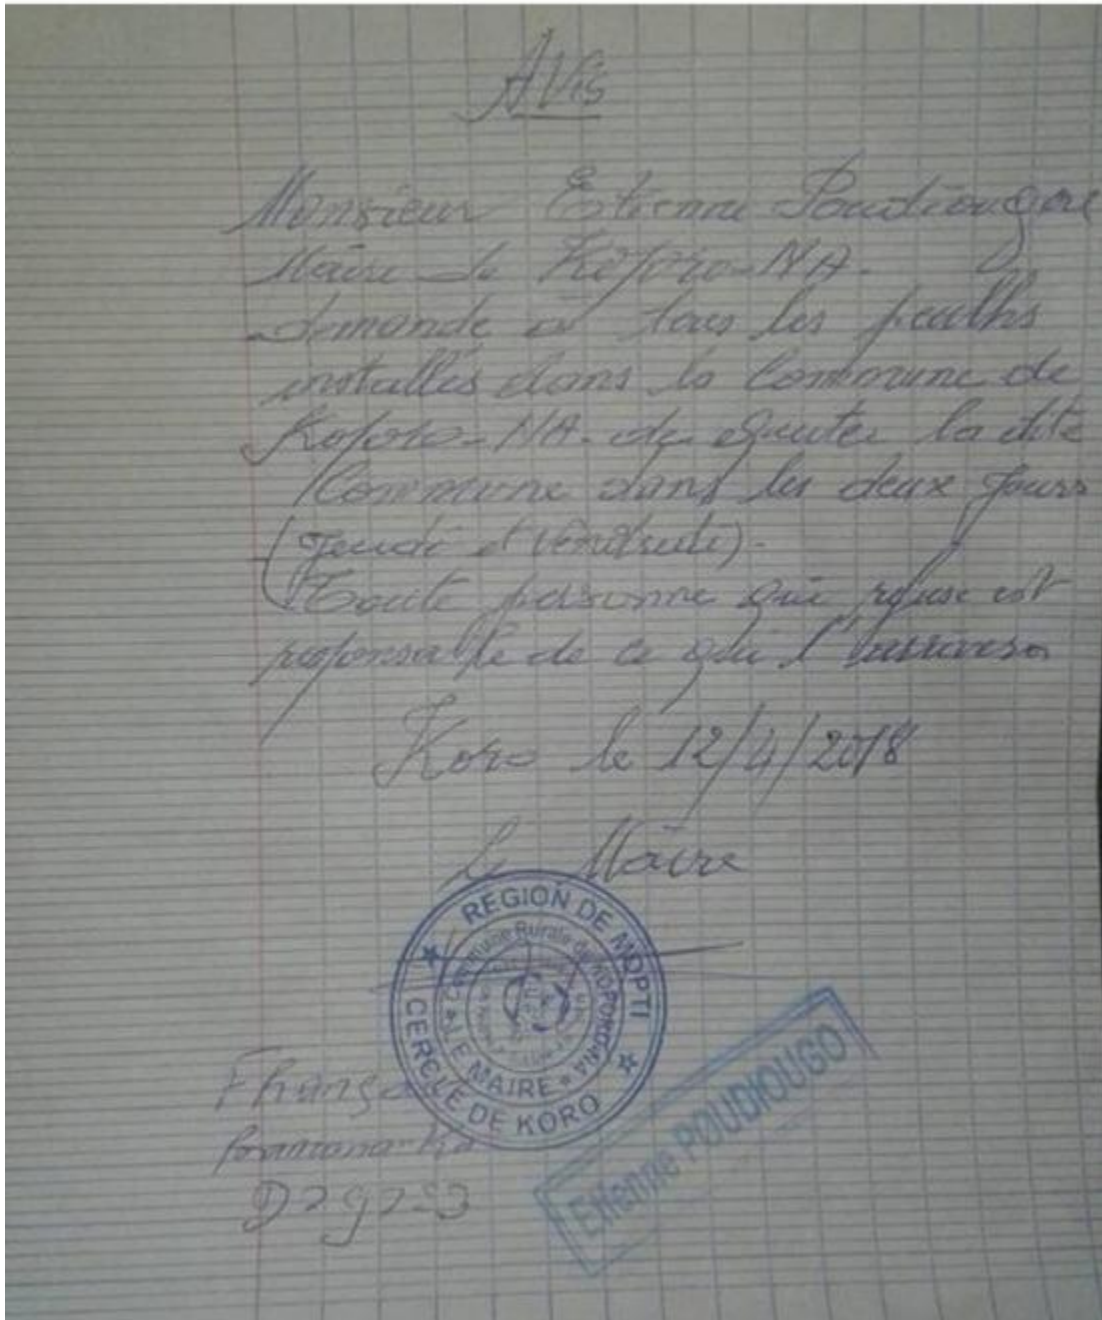 AVis
Monsieur Etienne Poudiougou
Maire de Koporo-NA.
demande à tous les peulhs
installés dans la Commune de
Koporo-NA. de quiter la dite
Commune dans les deux jours
(Jeudi et Vendredi).
Toute personne qui refuse est
responsable de ce qui l'arrivera
Koro le 12/4/2018
Le Maire
REGION DE MOPTI
Commune Rurale de KOPORO-NA
LE MAIRE
CERCLE DE KORO
Etienne POUDIOUGO